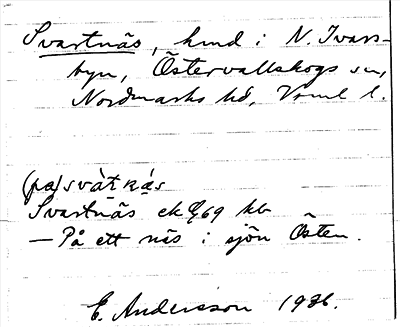 Svartnäs, hmd i N. Ivars-
byn, Östervallskogs sn,
Nordmarks hd, Vrml l.
(pa) svàt̠ṇás
Svartnäs ek 69 kb
— På ett näs i sjön Östen.
E. Andersson 1926.